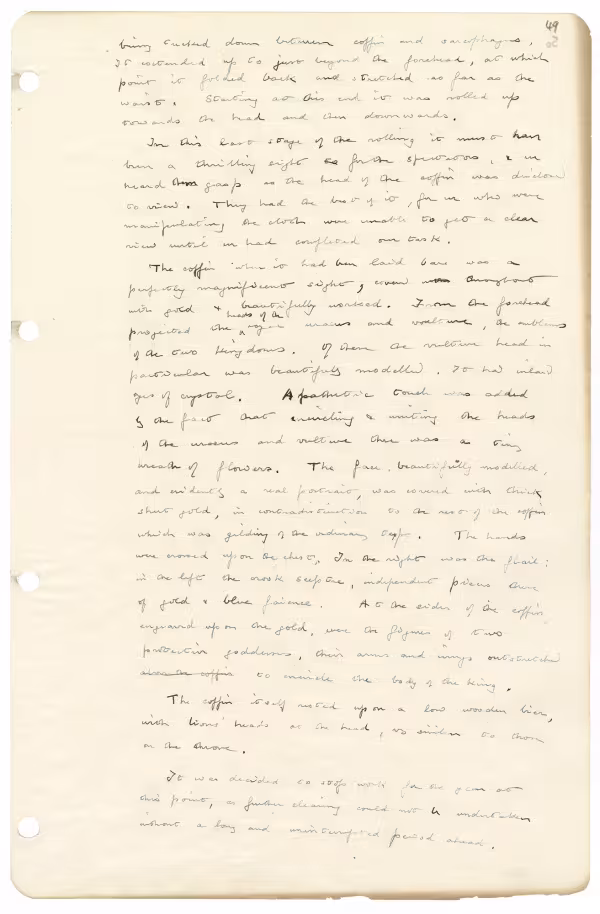 49
being tucked down between coffin and sarcophagus,
It extended up to just beyond the forehead, at which
point it folded back and stretched as far as the
waist. Starting at this end it was rolled up
towards the head and then downwards.
In this last stage of the rolling it must have
been a thrilling sight for the spectators, & we
heard them gasp as the head of the coffin was disclosed
to view. They had the best of it, for we who were
manipulating the cloth were unable to get a clear
view until we had completed our task.
The coffin when it had been laid bare was a
perfectly magnificent sight, covered throughout
with gold & beautifully worked. From the forehead
heads of the
projected the royal uraeus and vulture, the emblems
of the two kingdoms. Of them the vulture head in
particular was beautifully modelled. It had inlaid
eyes of crystal. A pathetic touch was added
by the fact that encircling & uniting the heads
of the uraeus and vulture there was a tiny
wreath of flowers. The face, beautifully modelled,
and evidently a real portrait, was covered with thick
sheet gold, in contradistinction to the rest of the coffin
which was gilding of the ordinary type. The hands
were crossed upon the chest, In the right was the flail:
in the left the crook sceptre, independent pieces these
of gold & blue faience. At the sides of the coffin,
engraved upon the gold, were the figures of two
protective goddesses, their arms and wings outstretched
to encircle the body of the king.
The coffin itself rested upon a low wooden bier,
with lions' heads at the head, similar to those
on the throne.
It was decided to stop work for the year at
this point, as further clearing could not be undertaken
without a long and uninterrupted period ahead.